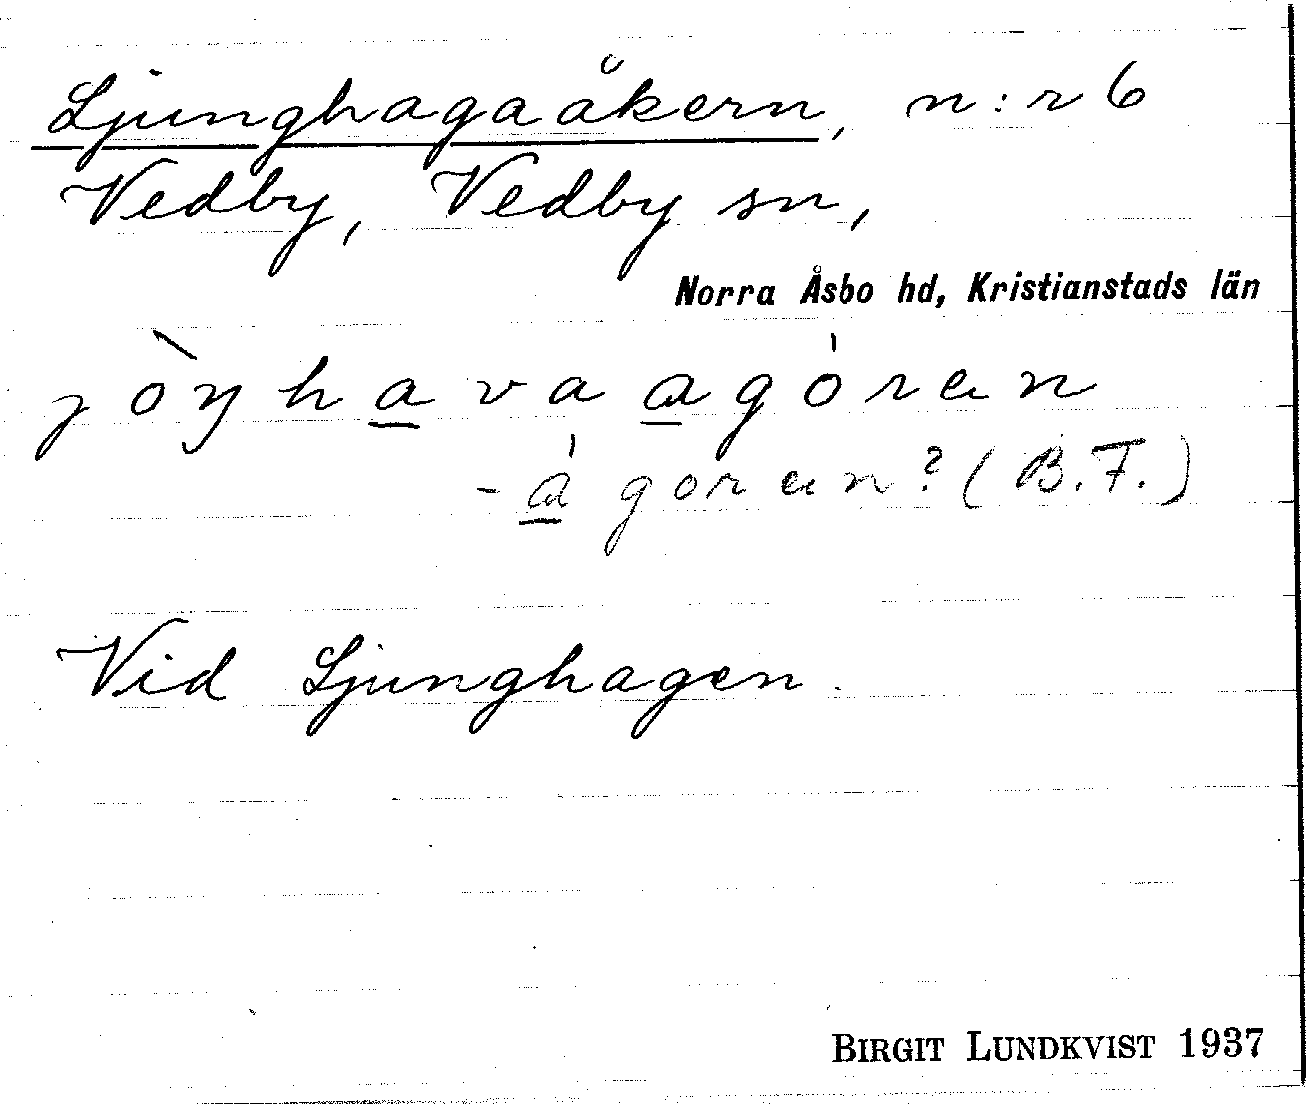 Ljunghagaåkern, n:r 6
Vedby, Vedby sn,
Norra Åsbo hd, Kristianstads län
jòŋhava agóræn
- á goræn? (B.F.)
Vid Ljunghagen.
BIRGIT LUNDKVIST 1937